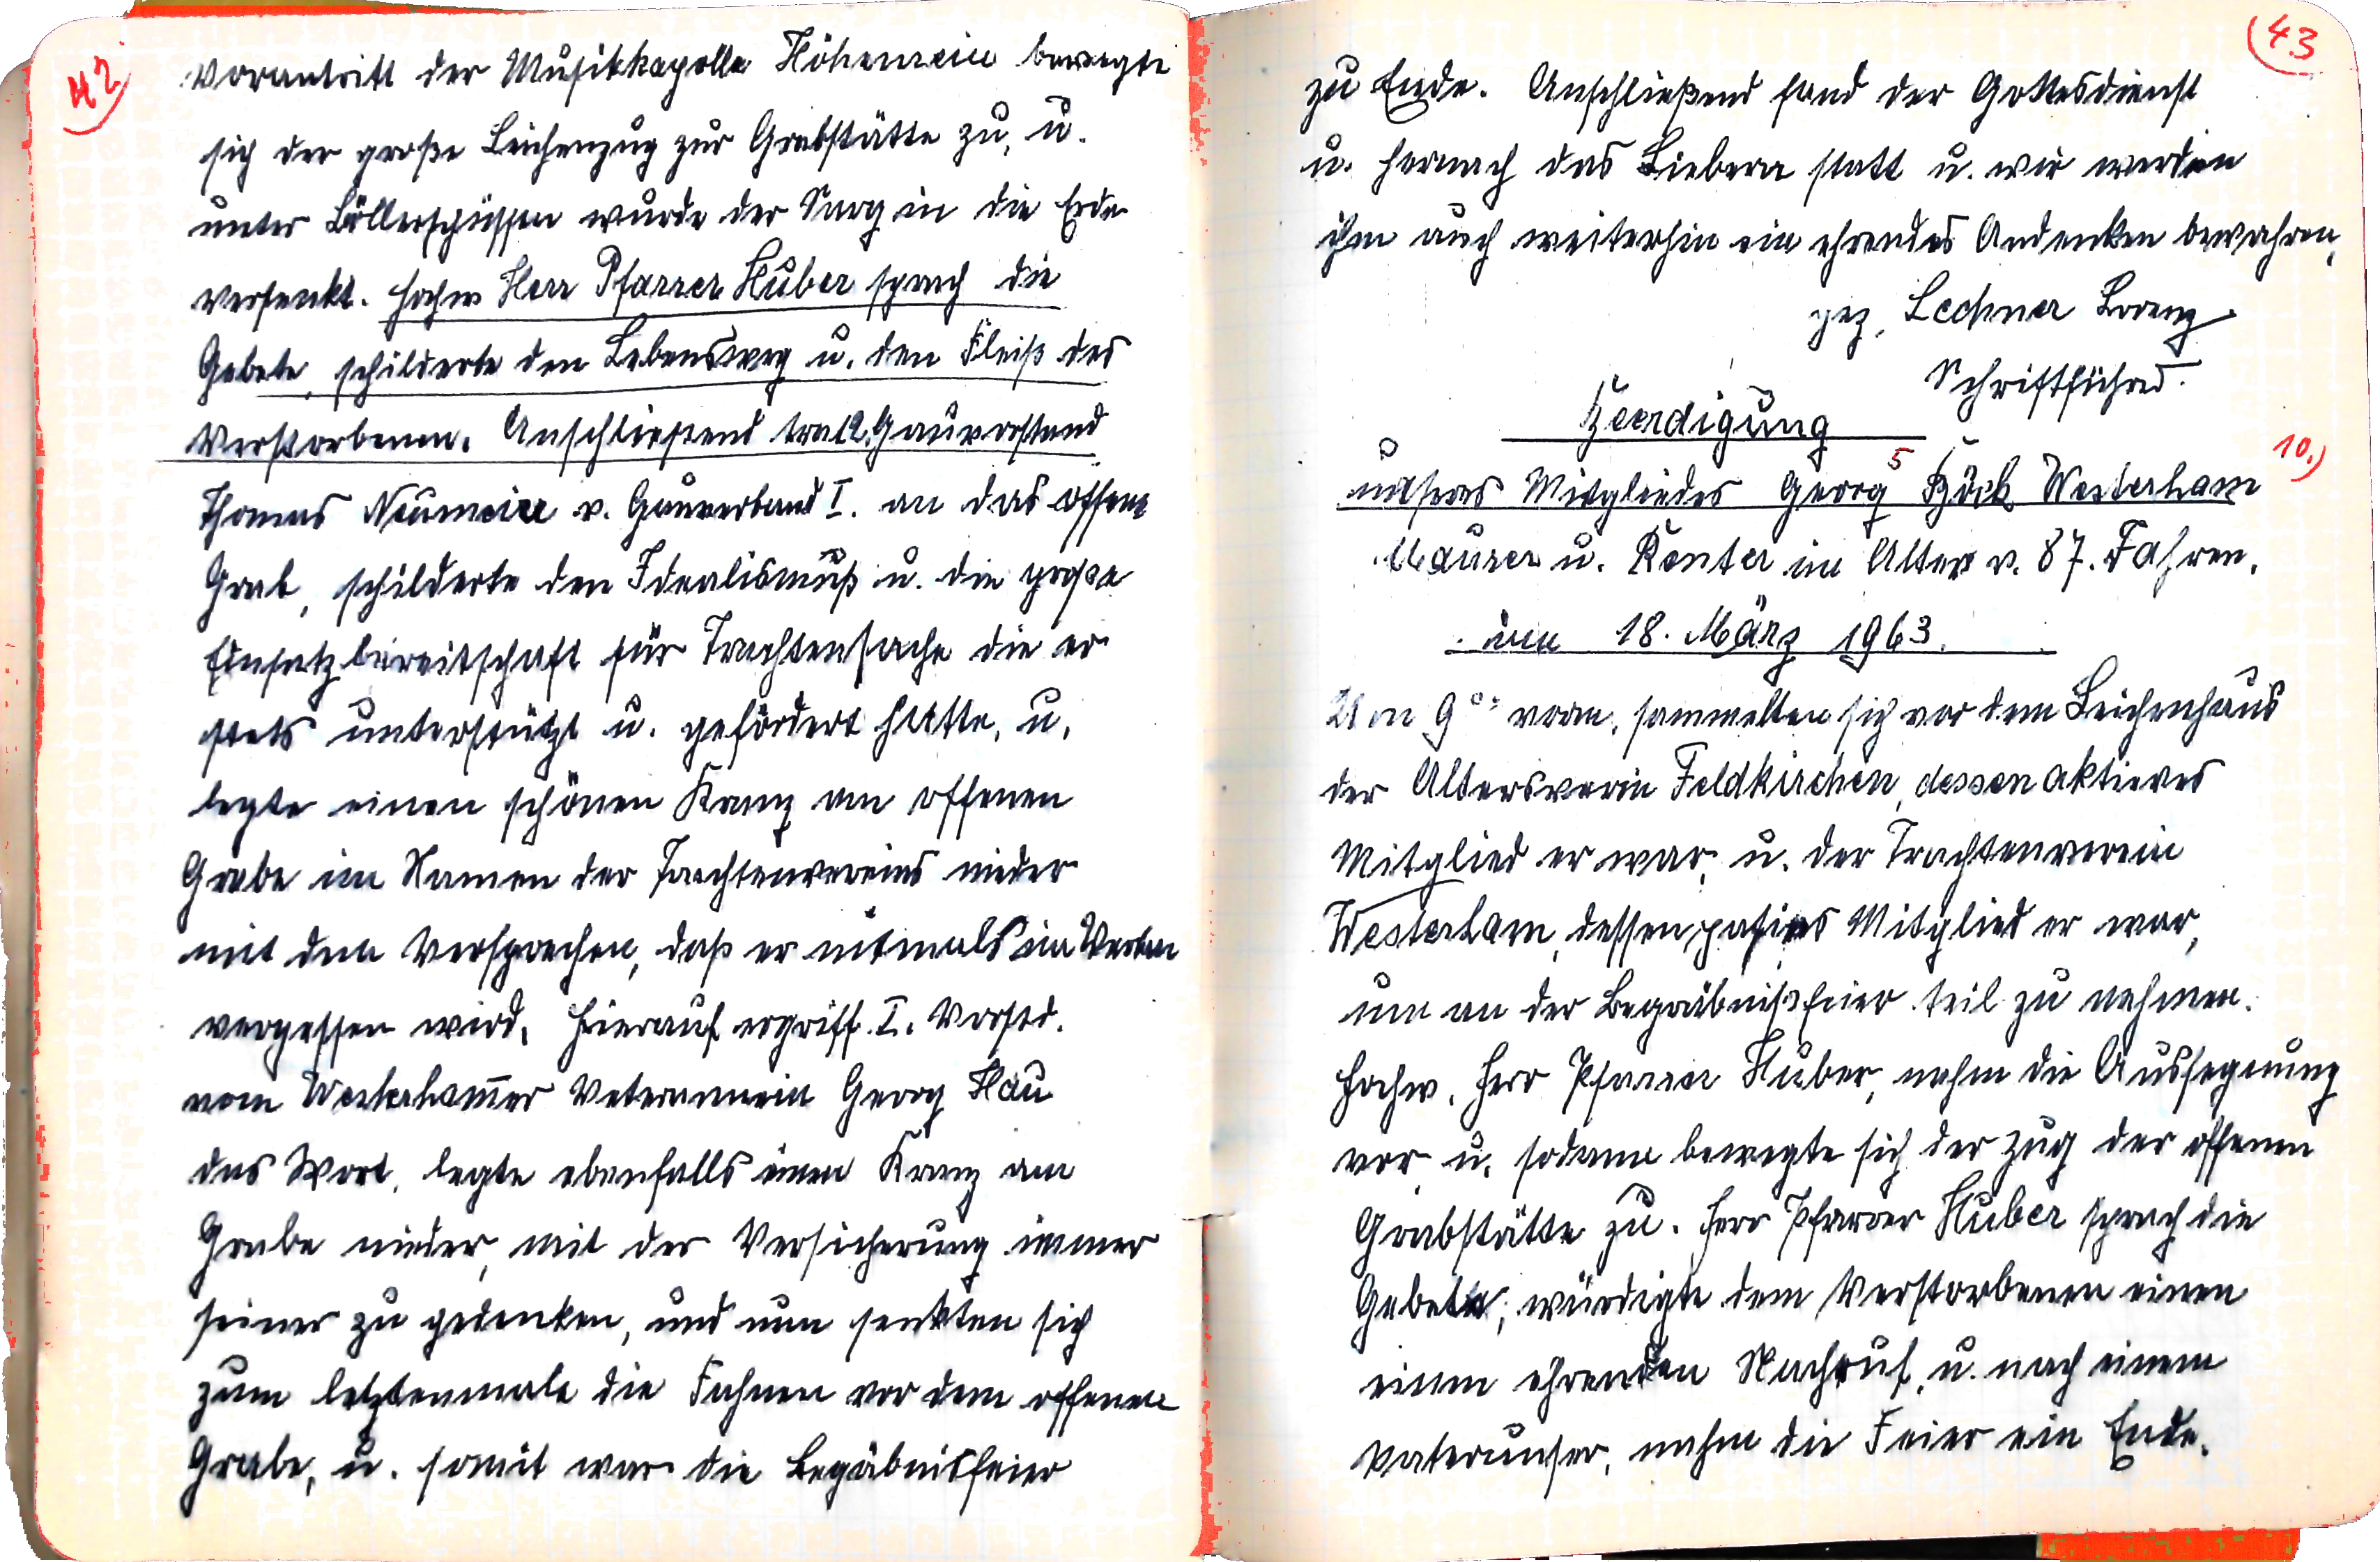 42
Vorantritt der Musikkapelle Höhenrain bewegte
sich der große Leichenzug zur Grabstätte zu, u.
unter Böllerschüssen wurde der Sarg in die Erde
versenkt. Hochw Herr Pfarrer Huber sprach die
Gebete, schilderte den Lebensweg u. den Fleiß des
Verstorbenen. Anschließend trat 2. Gauvorstand
Thomas Neumeier v. Gauverband I. an das offene
Grab, schilderte den Idealismuß u. die große
Einsatzbereitschaft für Trachtensache die er
stets unterstützt u. gefördert hatte, u.
legte einen schönen Kranz am offenen
Grabe im Namen der Trachtenvereins nieder
mit dem Versprechen, daß er niemals im Verein
vergessen wird. Hierauf ergriff I. Vorstd.
vom Westerham̄er Veteranverein Georg Hau
das Wort, legte ebenfalls einen Kranz am
Grabe nieder, mit der Versicherung immer
seiner zu gedenken, und nun senkten sich
zum letztenmale die Fahnen vor dem offenen
Grabe, u. somit war die Begäbnisfeier
43
zu Ende. Anschließend fand der Gottesdienst
u. hernach das Liebera statt u. wir werden
ihm auch weiterhin ein ehrendes Andenken bewahren,
gez. Lechner Lorenz
Schriftführer.
Beerdigung
10.)
5
unseres Mitgliedes Georg Böck Westerham
Maurer u. Rentner im Alter v. 87. Jahren.
am 18. März 1963.
Um 9 oo vorm. sammelten sich vor dem Leichenhaus
der Altersverein Feldkirchen, dessen aktieves
Mitglied er war, u. der Trachtenverein
Westerham, dessen passives Mitglied er war,
um an der Begräbnißfeier teil zu nehmen.
Hochw. Herr Pfarrer Huber, nahm die Aussegnung
vor u. sodann bewegte sich der Zug der offenen
Grabstätte zu. Herr Pfarrer Huber sprach die
Gebete, würdigte dem Verstorbenen einen
einen ehrenden Nachruf, u. nach einem
Vaterunser, nahm die Feier ein Ende.